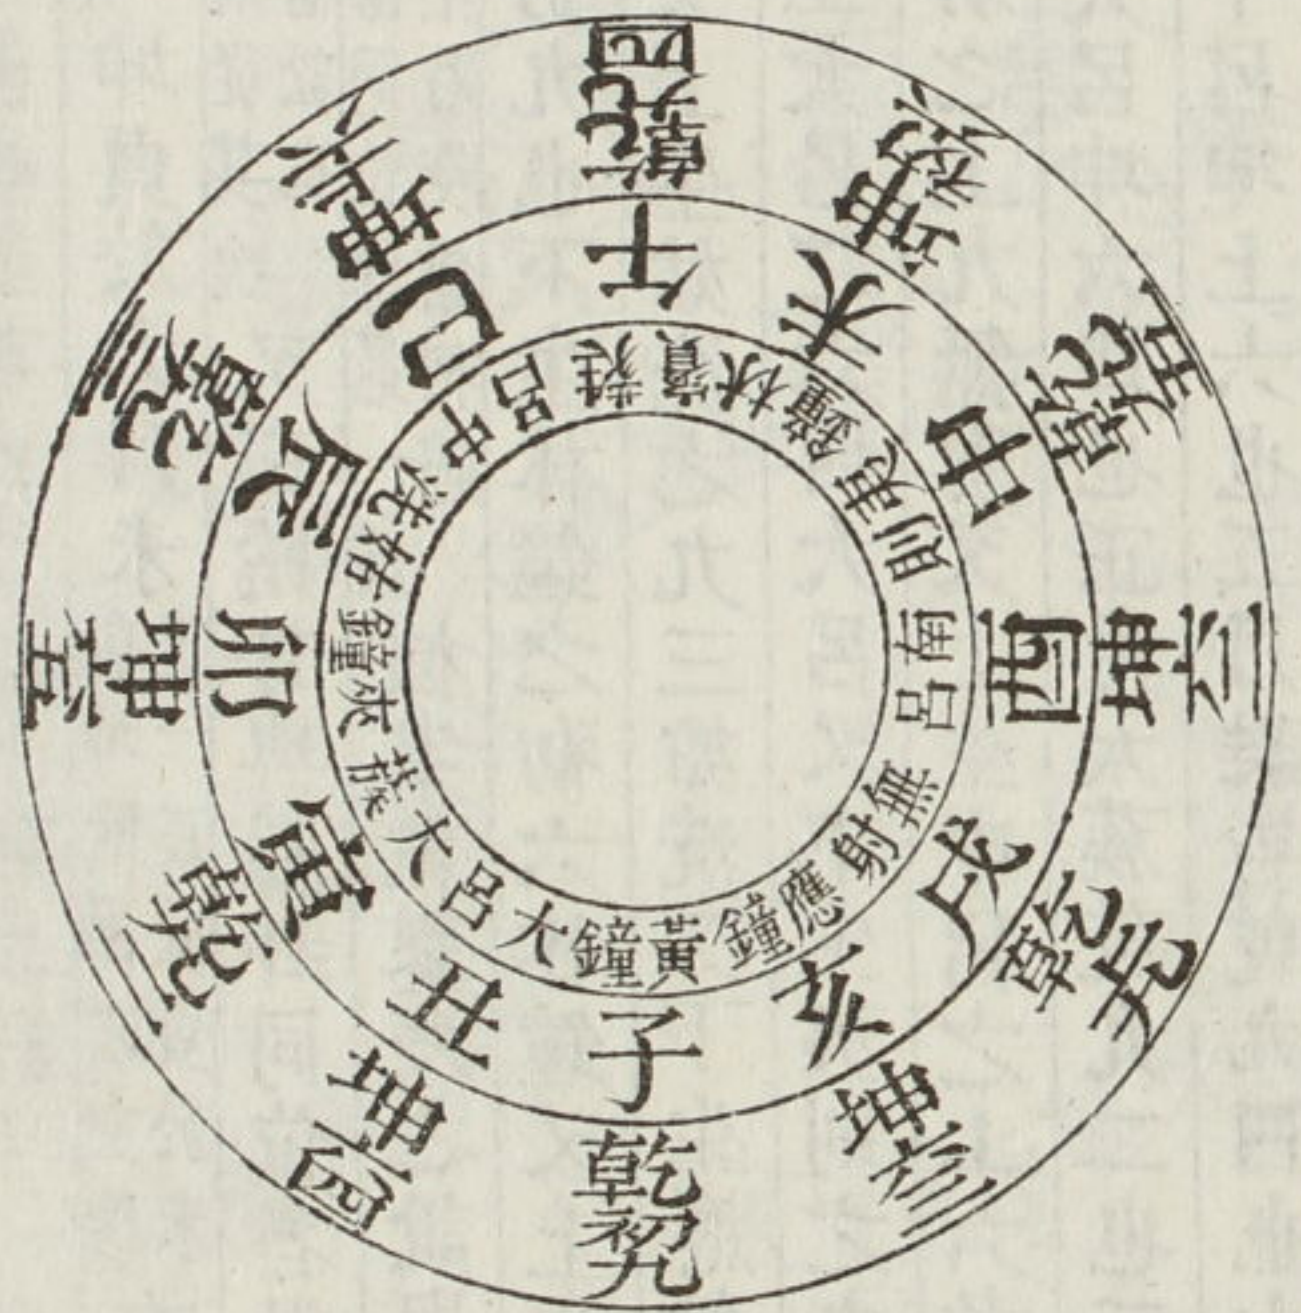 乾初九
坤六四
乾九二
坤六五
乾九三
坤上六
乾九四
坤初六
乾九五
坤六二
乾上九
坤六三
子
丑
寅
卯
辰
巳
午
未
申
酉
戌
亥
黃鐘
大呂
大蔟
夾鐘
姑洗
中呂
蕤賓
林鐘
夷則
南呂
無射
應鐘